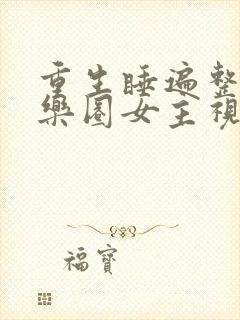 重生睡遍整
樂圈女主視
福寶